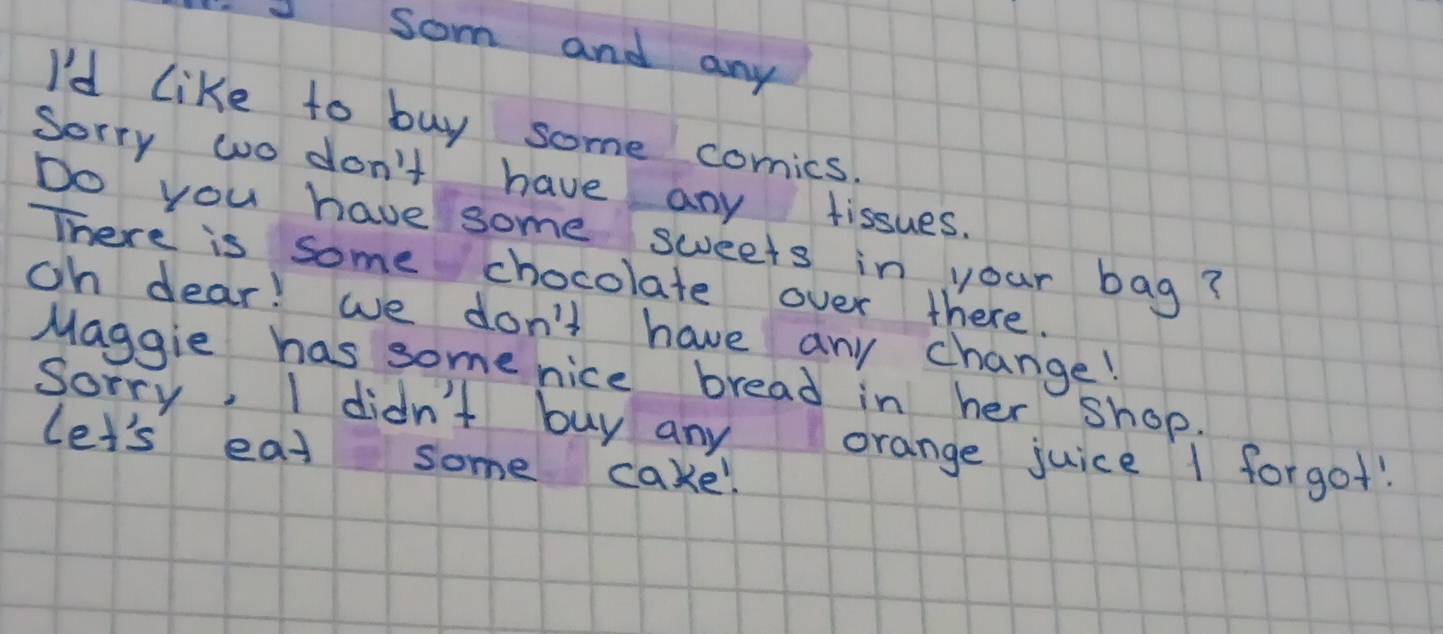 som and any
I'd like to buy some comics.
Sorry wo don't have any tissues.
Do you have some sweets in your bag?
There is some chocolate over there.
Oh dear! we don't have any change!
Maggie has some nice bread in her shop.
Sorry, I didn't buy any orange juice I forgot!
Let's eat some cake!